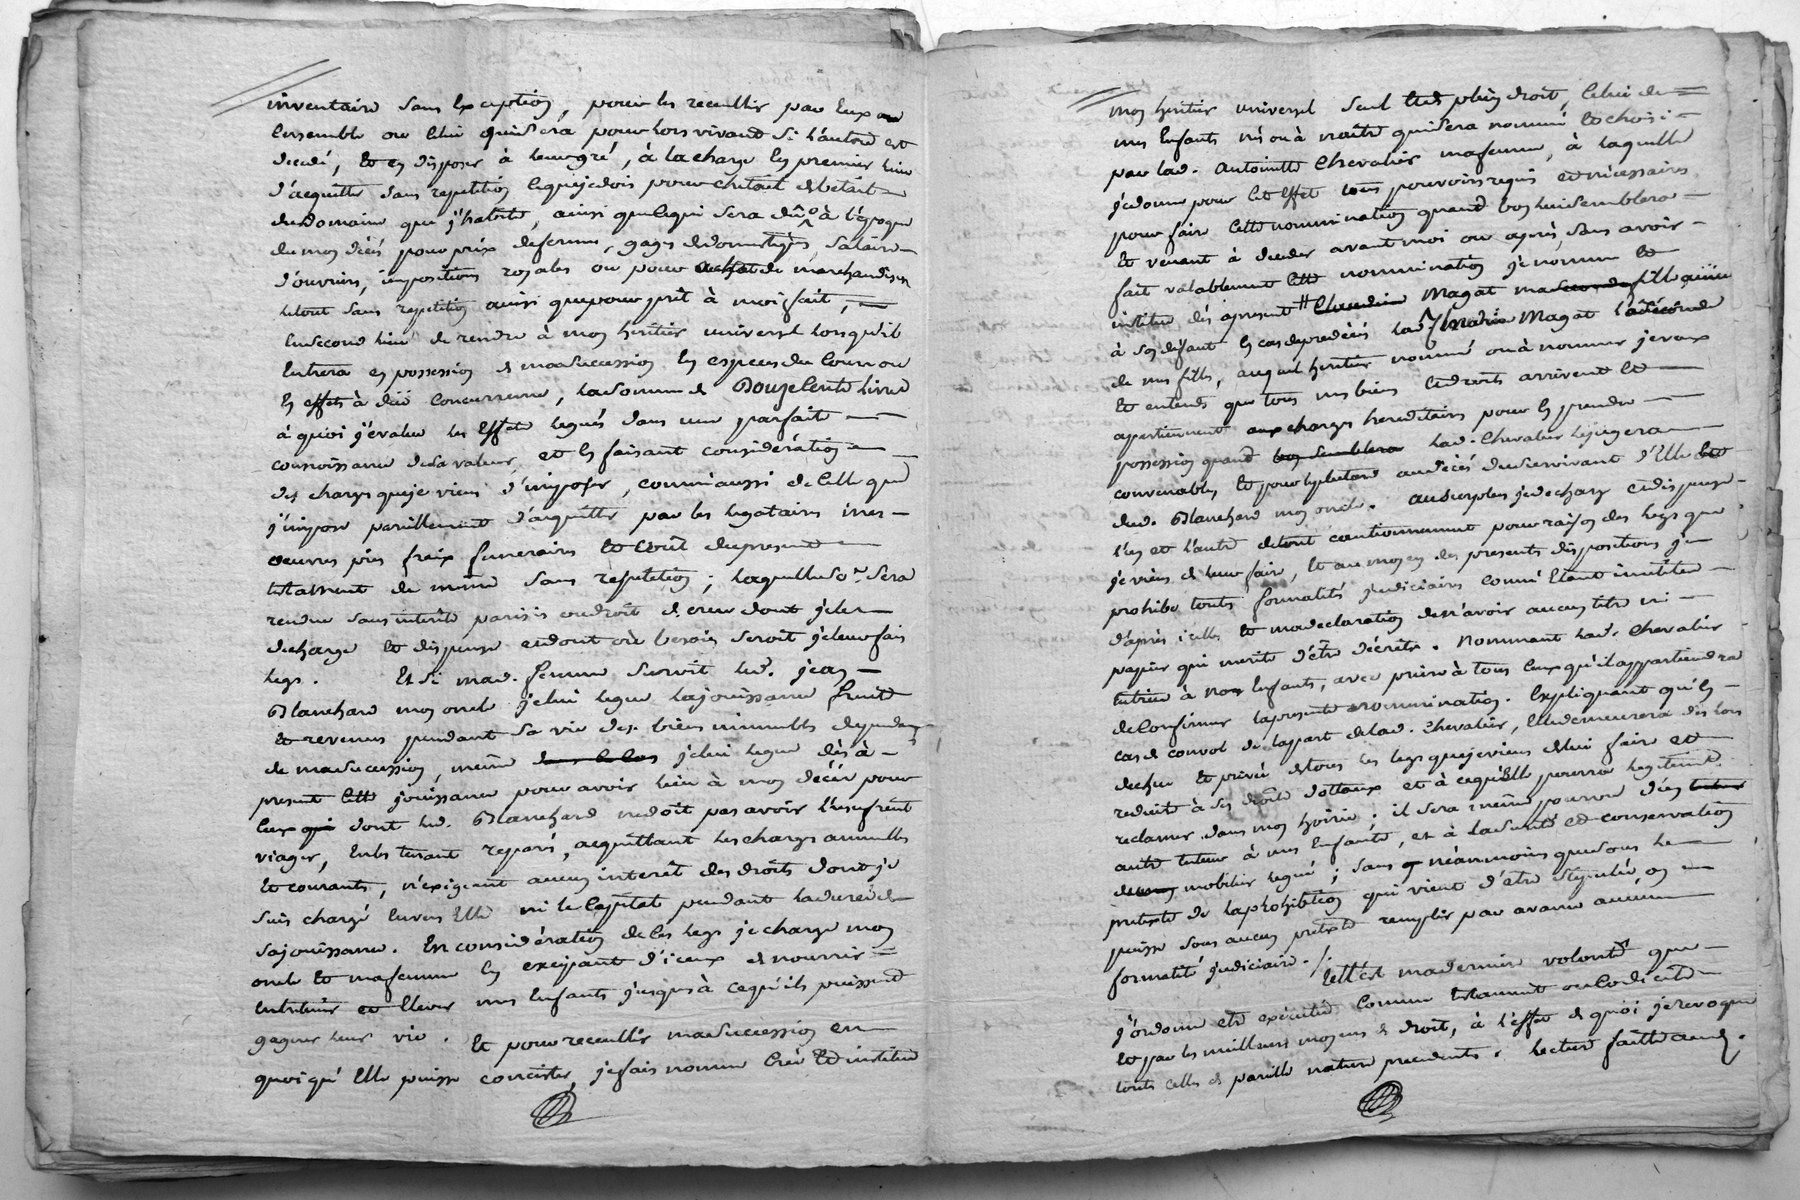 inventaire sans exception, pour les receullir par eux
ensemble ou celui qui sera pour lors vivant si l'autre est
décedé, et en disposer à leur gré, à la charge en premier lieu
d'acquitter sans repetition ce que je dois pour chetait de betail
du domaine que j'habite, ainsi que ce qui sera dû à l'epoque
de mon décès pour prix de ferme, gages de domestiques, salaire
d'ouvriers, impositions royales ou pour achat de marchandises
le tout sans repetition ainsi que pour prêt à moi fait,
en second lieu de rendre à mon heritier universel lorsqu'il
entrera en possession de ma succession en especes de cours ou
en effets à dire concurrence, la somme de Douze cents livres
à quoi j'évalue les effets legués dans une parfait
connoissance de sa valeur, et en faisant considération
des charges que je viens d'imposer, comme aussi de celle que
j'impose pareillement d'acquitter par les legataires mes
oeuvres pies fraix funeraires et coût du present
testament de même sans repetition; laquelle so.e sera
rendue sans interêt parisis ou droit de crue dont je les
decharge et dispense et dont où besoin seroit je leur fais
legs. Et si mad. femme survit led. jean
Blanchard mon oncle je lui legue la jouissance fruits
et revenus pendant sa vie des biens immeubles dependans
de ma succession, même dans le cas je lui legue dès à
present cette jouissance pour avoir lieu à mon décès pour
ceux qui dont led. Blanchard ne doit pas avoir l'usufruit
viager, en les tenant reparés, acquittant les charges annuelles
et courants, n'exigeant aucun interêt des droits dont je
suis chargé envers elle ni le capital pendant la durée de
sa jouissance. En considération de ces legs je charge mon
oncle et ma femme en exeipant d'iceux de nourrir
entretenir et elever mes enfants jusques à ce qu'ils puissent
gagner leur vie. Et pour recueullir ma succession en
quoi qu'elle puisse concister, je fais nomme créé et institue
mon heritier universel seul et de plein droit, celui de
mes enfants nés ou à naître qui sera nommé et choisi
par lad. Antoinette Chevalier ma femme, à laquelle
je donne pour cet effet tous pouvoirs requis et nécessaires
pour faire cette nomination quand bon lui semblera
et venant à deceder avant moi ou après, sans avoir
fait valablement cette nomination je nomme et
institue dès apresent # Claudine Magat ma seconde fille ainée
à son defaut en cas de predécès lad. Maria Magat la seconde
de mes filles, auquel heritier nommé ou à nommer je veux
et entends que tous mes biens et droits arrivent et
apartiennent aux charges hereditaires pour en prendre
possession quand bon semblera lad. Chevalier le jugera
convenable, et pour le plutard au décès du survivant d'elle et
dud. Blanchard mon oncle. Au surplus je decharge et dispense
l'un et l'autre de tout cautionnement pour raison des legs que
je viens de leur faire, et au moyen des presents dispositions je
prohibe toute formalité judiciaire comme etant inutiles
d'après icelles et ma declaration de n'avoir aucun titre ni
papier qui merite d'être décrets. Nommant lad. Chevalier
tutrice à nos enfants, avec priere à tous ceux qu'il appartiendra
de confirmer la presente nomination. Expliquant qu'en
cas de convol de la part de lad. Chevalier, elle demeurera dès lors
dechue et privée de tous les legs que je viens de lui faire et
reduite à ses droits dottaux et à ce qu'elle pourra legitime.
reclamer dans mon hoirie; il sera même pourvu d'un tuteur
autre tuteur à mes enfants, et à la sureté et conservation
du mobilier legué; sans néanmoins que sous le
pretexte de la prohibition qui vient d'etre stipulée, on
puisse sous aucun pretexte remplir par avance aucune
formalité judiciaire. /. Telle est ma derniere volonté que
j'ordonne etre executée comme testament ou codicile
et par les meilleurs moyens de droit, à l'effet de quoi je revoque
touts celles de pareille nature precedents. Lecture faitte